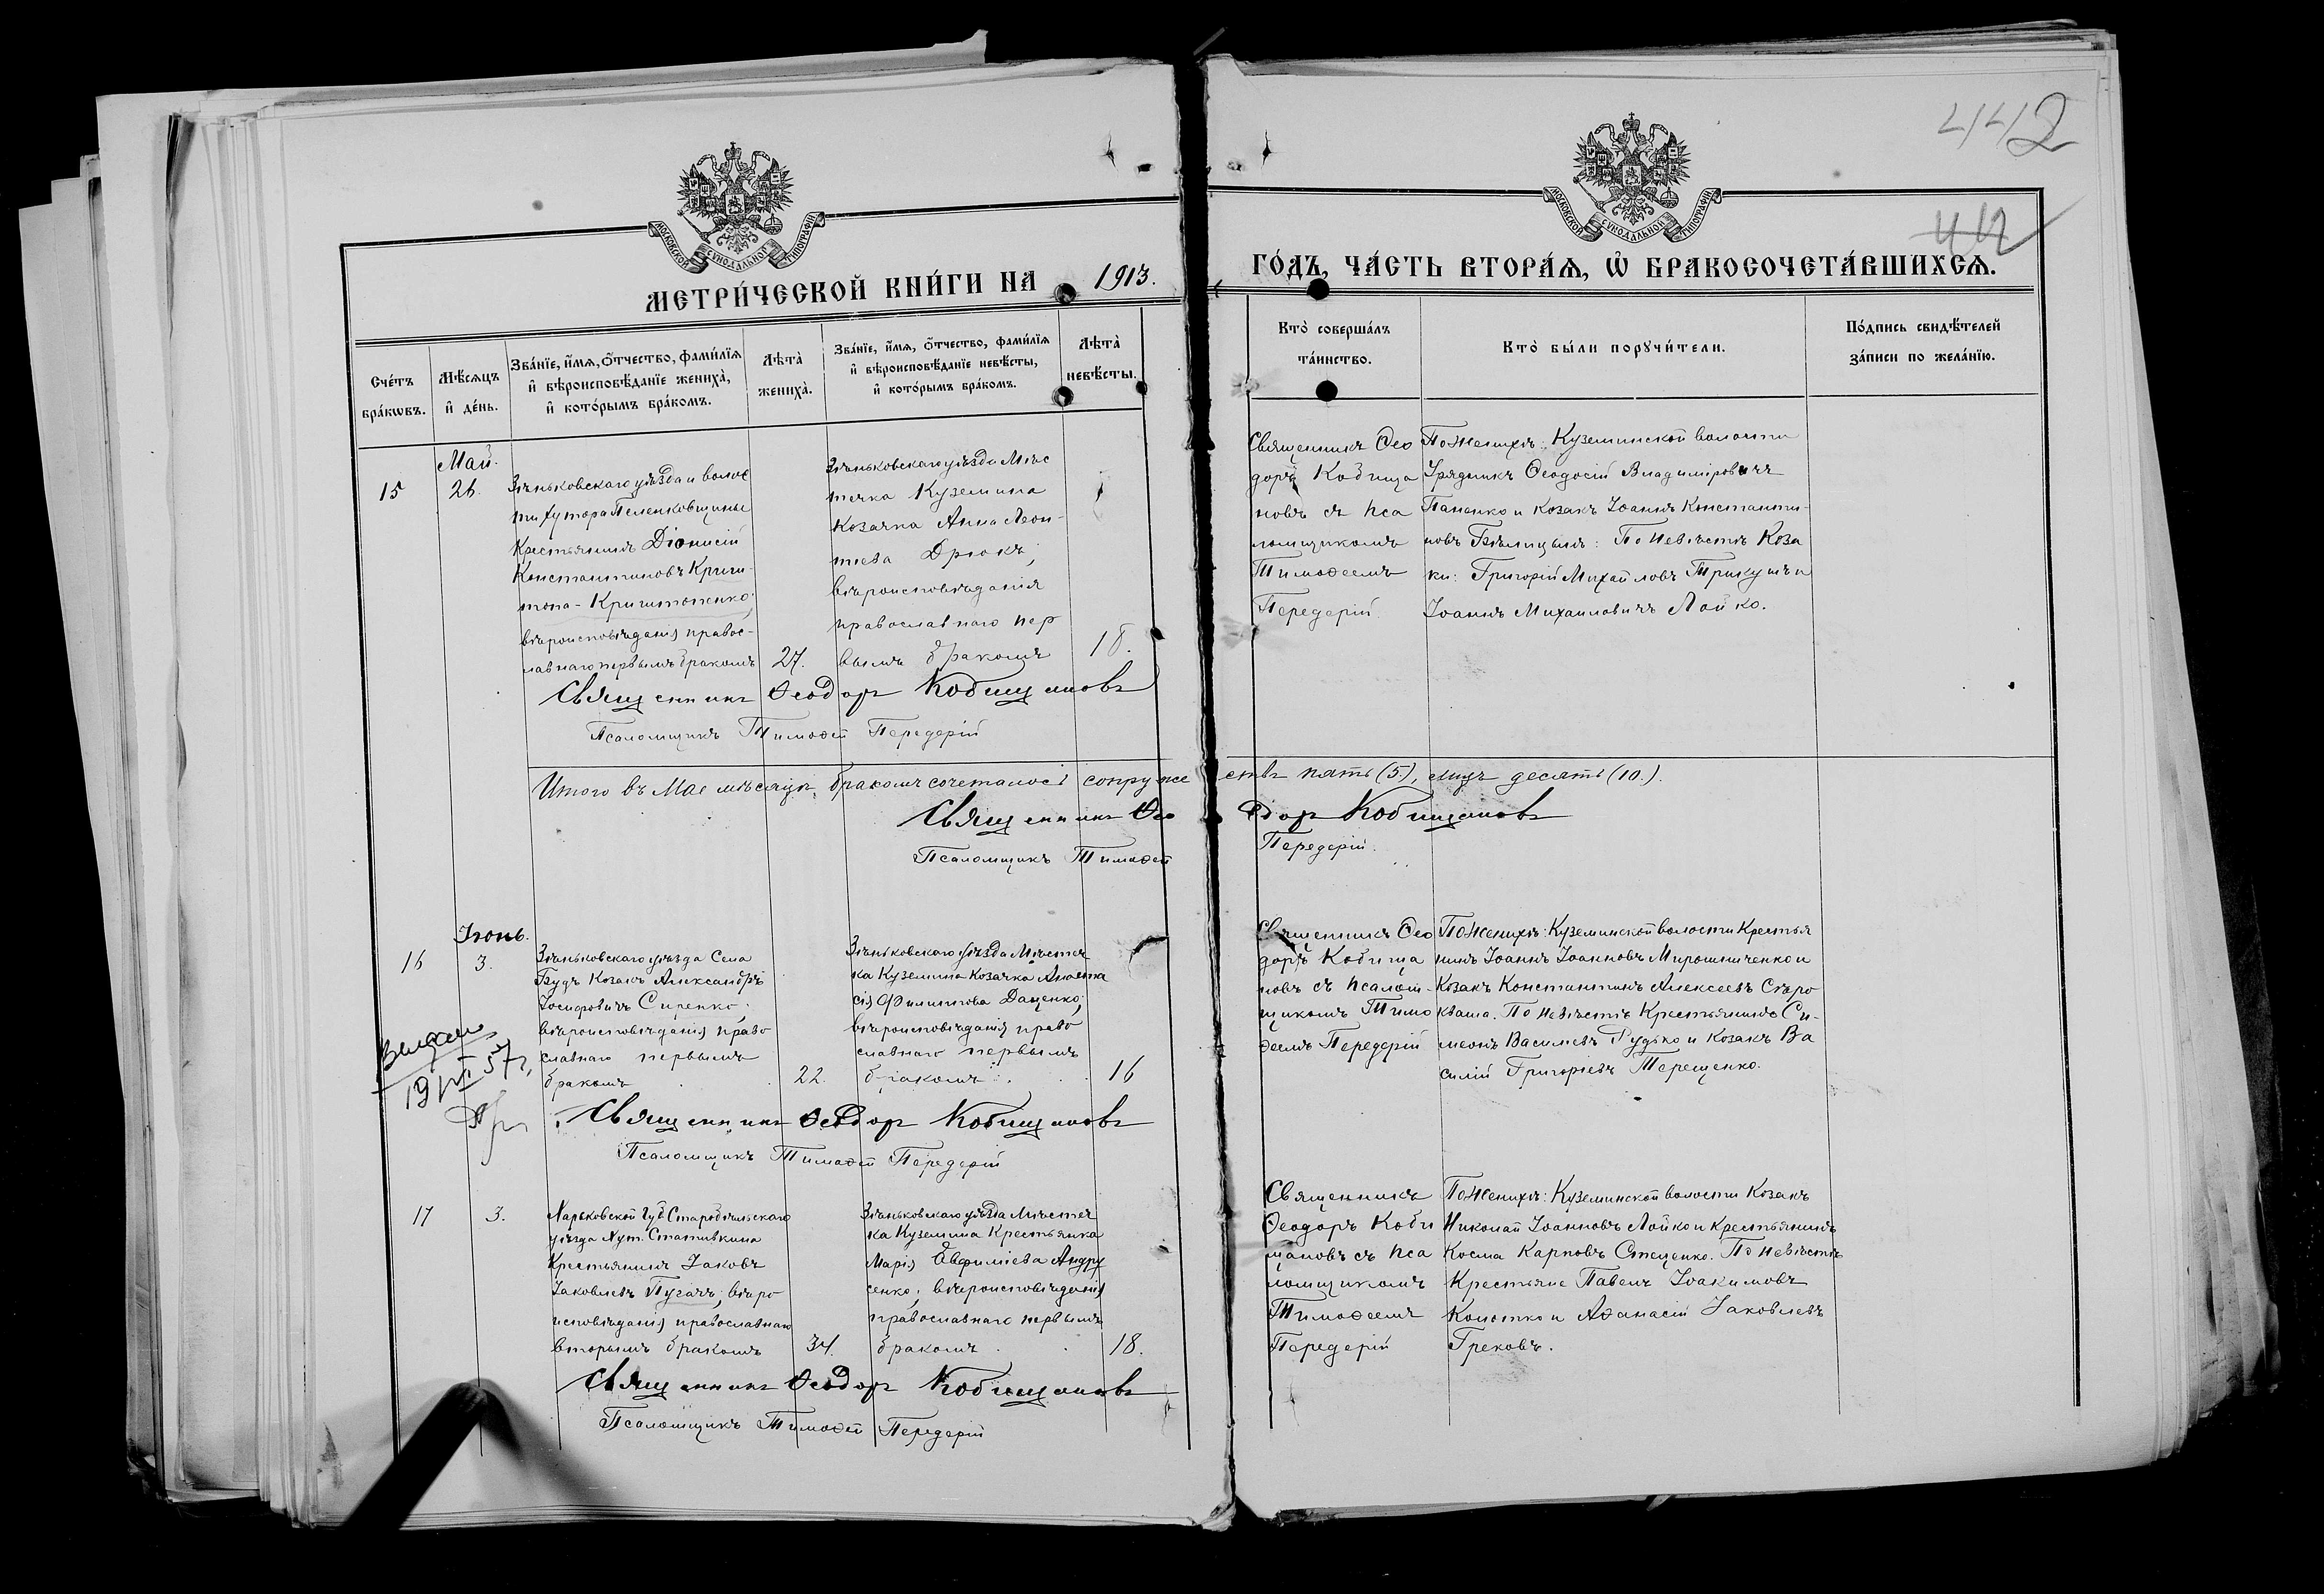 442
442
МОСКОВСКОЙ СѴНОДАЛЬНОЙ ТИПОГРАФІИ
МОСКОВСКОЙ СѴНОДАЛЬНОЙ ТИПОГРАФІИ
МЕТРИ́ЧЕСКОЙ КНИ́ГИ НА 1913.
ГО́ДЪ, ЧА́СТЬ ВТОРА́Я, Ѡ҆ БРАКОСОЧЕТА́ВШИХСЯ.
Сче́тъ
бра́кѡвъ.
Мѣ́сяцъ
и҆ де́нь.
Зва́нїе, и҆́мя, о҆́тчество, фами́лїя
и҆ вѣроисповѣ́данїе жениха̀,
и҆ кото́рымъ бра́комъ.
Лѣ́та̀
жениха̀.
Зва́нїе, и҆́мя, о҆́тчество, фами́лїя
и҆ вѣроисповѣ́данїе невѣ́сты,
и҆ кото́рымъ бра́комъ.
Лѣ́та̀
невѣ́сты.
Кто̀ соверша́лъ
та́инство.
Кто̀ бы́ли порꙋчи́тели.
По́дпись свидѣ́телей
за́писи по жела́нїю.
15
Май.
26.
Зѣньковскаго уѣзда и волос
ти хутора Пеленковщины
Крестьянинъ Діонисій
Константиновъ Кришто
топа - Криштопенко;
вѣроисповѣданія правос-
лавнаго первымъ бракомъ
27.
Зѣньковскаго уѣзда Мѣс
течка Куземина
Козачка Анна Леон-
тіева Дрюкъ;
вѣроисповѣданія
православнаго пер
вымъ бракомъ
18.
Священникъ Ѳео
доръ Кобища
новъ съ пса
ломщикомъ
Тимоѳеемъ
Передерій
По женихѣ: Куземинской волости
Урядникъ Ѳеодосій Владиміровичъ
Паненко и Козакъ Іоаннъ Константи-
новъ Бѣлицынъ: По невѣстѣ Коза
ки: Григорій Михайловъ Трикушъ и
Іоаннъ Михаиловичъ Лойко.
Священникъ Ѳеодоръ Кобищановъ
Псаломщикъ Тимоѳей Передерій
Итого въ Мае мѣсяцѣ бракомъ сочеталось супруже ствъ пять (5.), лицъ десять (10.).
Священникъ Ѳео доръ Кобищановъ
Псаломщикъ Тимоѳей Передерій.
16
Іюнь.
3.
Зѣньковскаго уѣзда Села
Будъ Козакъ Александръ
Іосифовичъ Сиренко;
вѣроисповѣданія право
славнаго первымъ
бракомъ
22.
Зѣньковскаго уѣзда Мѣстеч
ка Куземина Козачка Анаста
сія Филиппова Даценко;
вѣроисповѣданія право
славнаго первымъ
бракомъ.
16
Священникъ Ѳео
доръ Кобища
новъ съ псалом-
щикомъ Тимо
ѳеемъ Передерій
По женихѣ: Куземинской волости Крестья
нинъ Іоаннъ Іоанновъ Мирошниченко и
Козакъ Константинъ Алексеевъ Сѣро
кваша. По невѣстѣ Крестьянинъ Си-
меонъ Василіевъ Рудько и Козакъ Ва
силій Григоріевъ Терещенко.
19/VI 57 г,
Священникъ Ѳеодоръ Кобищановъ
Псаломщикъ Тимоѳей Передерій
17
3.
Харьковской Губ Старобѣльскаго
уѣзда Хут. Стативкина
Крестьянинъ Іаковъ
Іаковлевъ Пугачъ; вѣро
исповѣданія православнаго
вторымъ бракомъ
34.
Зѣньковскаго уѣзда Мѣстеч
ка Куземина Крестьянка
Марія Евфиміева Андру
сенко; вѣроисповѣданія
православнаго первымъ
бракомъ.
18.
Священникъ
Ѳеодоръ Коби
щановъ съ пса
ломщикомъ
Тимоѳеемъ
Передерій
По женихѣ: Куземинской волости Козакъ
Николай Іоанновъ Лойко и Крестьянинъ
Косма Карповъ Стеценко. По невѣстѣ
Крестьяне Павелъ Іоакимовъ
Колотко и Аѳанасій Іаковлевъ
Грековъ.
Священникъ Ѳеодоръ Кобищановъ
Псаломщикъ Тимоѳей Передерій